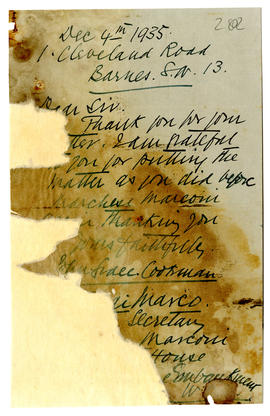 2802
Dec 4th 1935.
1. Cleveland Road
Barnes. S.W. 13.
Dear Sir.
Thank you for your
tter. I am grateful
you for putting the
matter as you did before
Marchese Marconi
thanking you
yours faithfully.
Cookman
Marco.
Secretary
Marconi
House
Embankment